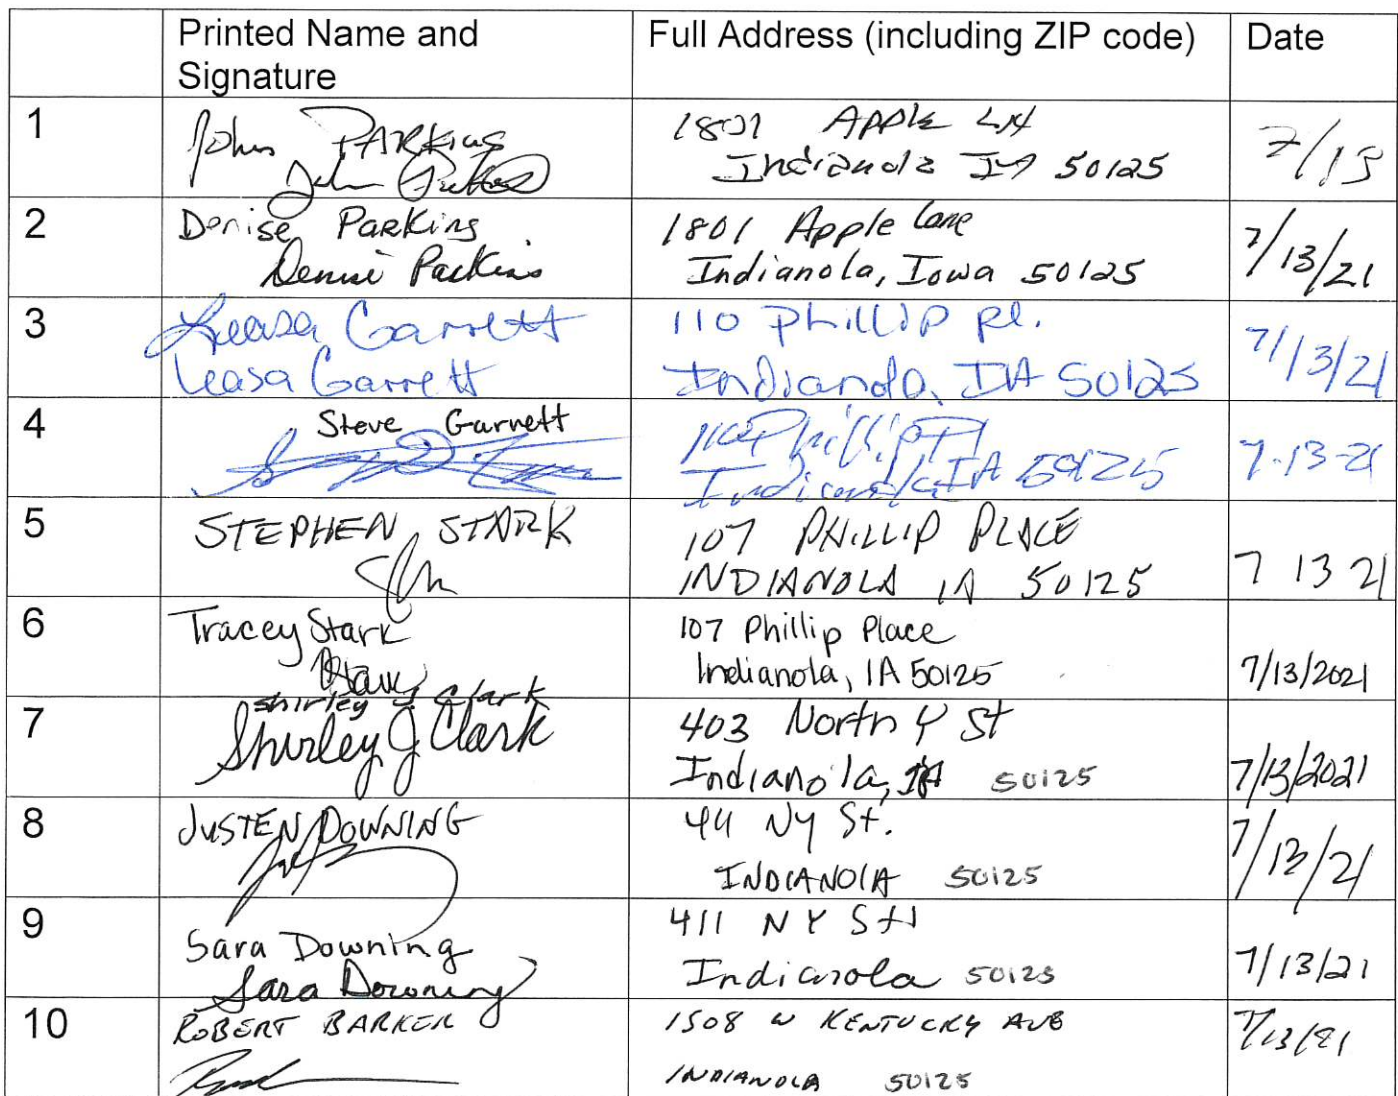 Printed Name and Signature
Full Address (including ZIP code)
Date
1
John PARKINS
1801 Apple LN
Indianola IA 50125
7/13
2
Denise Parkins
Denise Parkins
1801 Apple Lane
Indianola, Iowa 50125
7/13/21
3
Leasa Garrett
Leasa Garrett
110 Phillip pl.
Indianola, IA 50125
7/13/21
4
Steve Garrett
110 Phillip Pl
Indianola IA 50125
7-13-21
5
STEPHEN STARK
107 PHILLIP PLACE
INDIANOLA IA 50125
7 13 21
6
Tracey Stark
107 Phillip Place
Indianola, IA 50125
7/13/2021
7
Shirley J Clark
Shirley J Clark
403 North Y St
Indianola, IA 50125
7/13/2021
8
JUSTEN DOWNING
411 NY St.
INDIANOLA 50125
7/13/21
9
Sara Downing
Sara Downing
411 N Y St
Indianola 50125
7/13/21
10
ROBERT BARKER
1508 W KENTUCKY AVE
INDIANOLA 50125
7/13/21